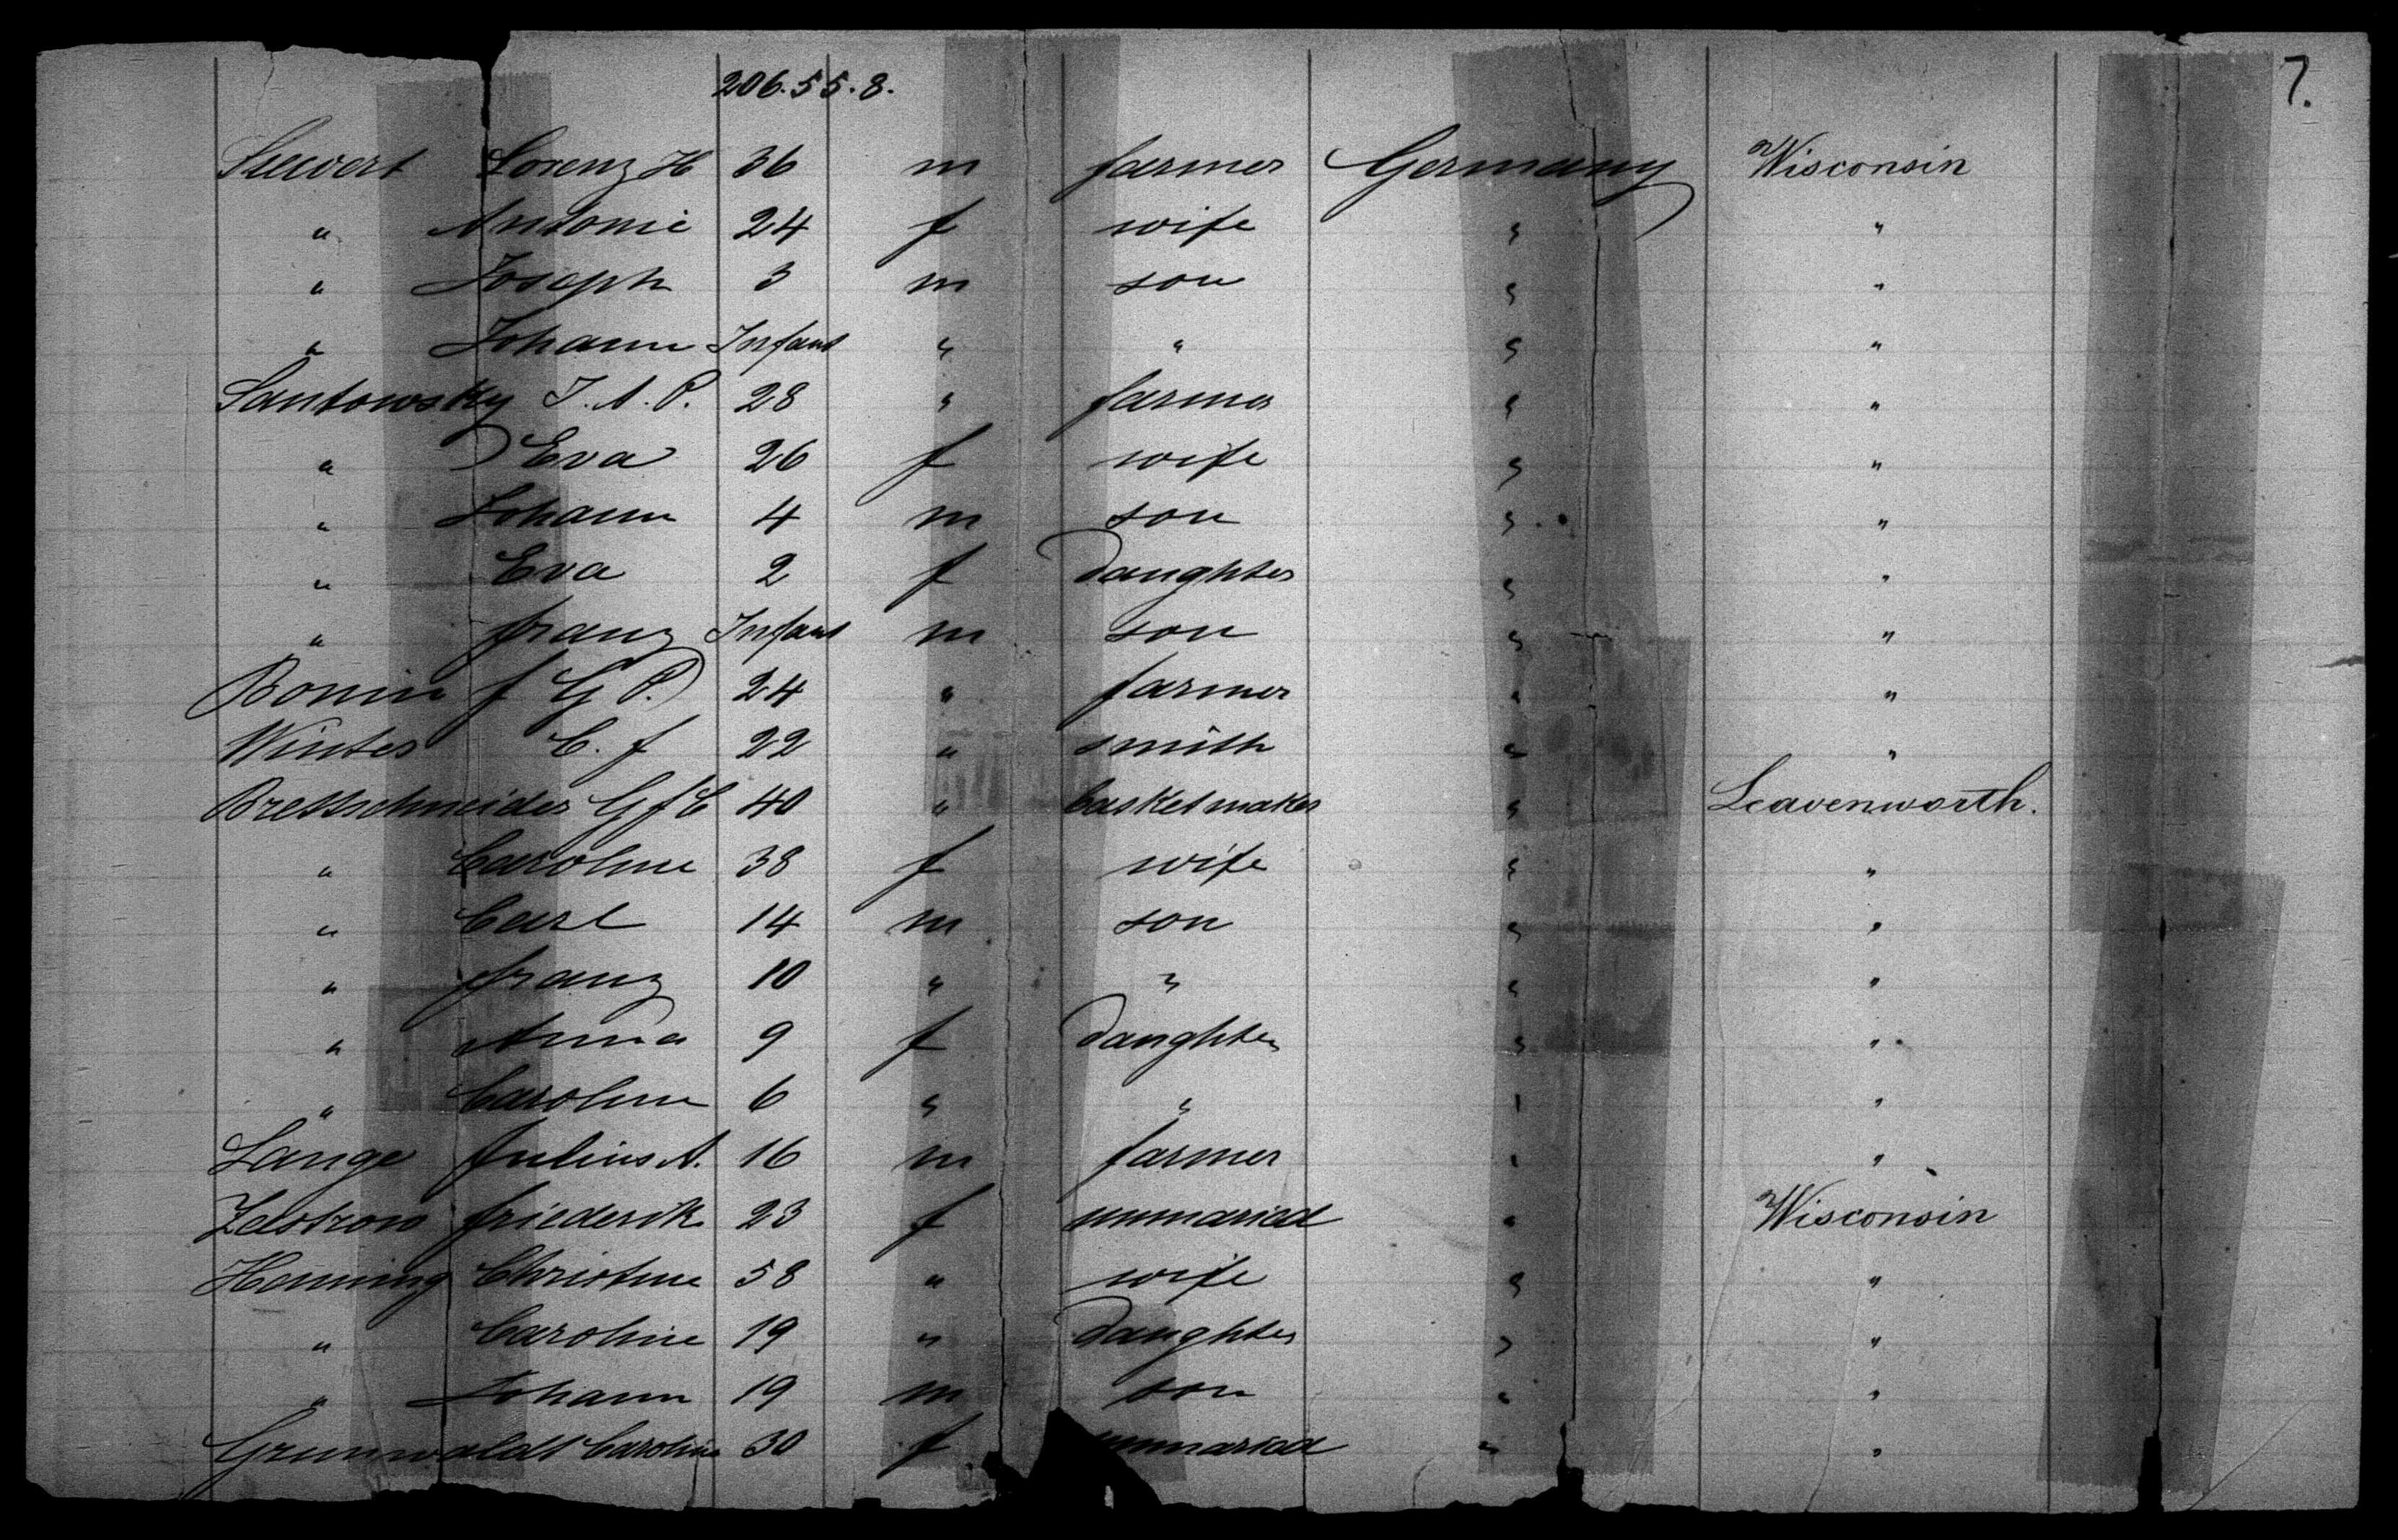 206.55.8.
7.
Sievert Lorenz H 36 m farmer Germany Wisconsin
" Antonie 24 f wife " "
" Joseph 3 m son " "
" Johann Infant " " " "
Santowsky J. A. P. 28 " farmer " "
" Eva 26 f wife " "
" Johann 4 m son " "
" Eva 2 f daughter " "
" Franz Infant m son " "
Bonin F G P. 24 " farmer " "
Winter C. F 22 " smith " "
Brettschneider G F C 40 " basketmaker " Leavenworth.
" Caroline 38 f wife " "
" Carl 14 m son " "
" Franz 10 " " " "
" Anna 9 f daughter " "
" Caroline 6 " " " "
Lange Julius A. 16 m farmer " "
Zastrow Friederik 23 f unmaried " Wisconsin
Henning Christine 58 " wife " "
" Caroline 19 " daughter " "
" Johann 19 m son " "
Grunwaldt Caroline 30 f unmaried " "